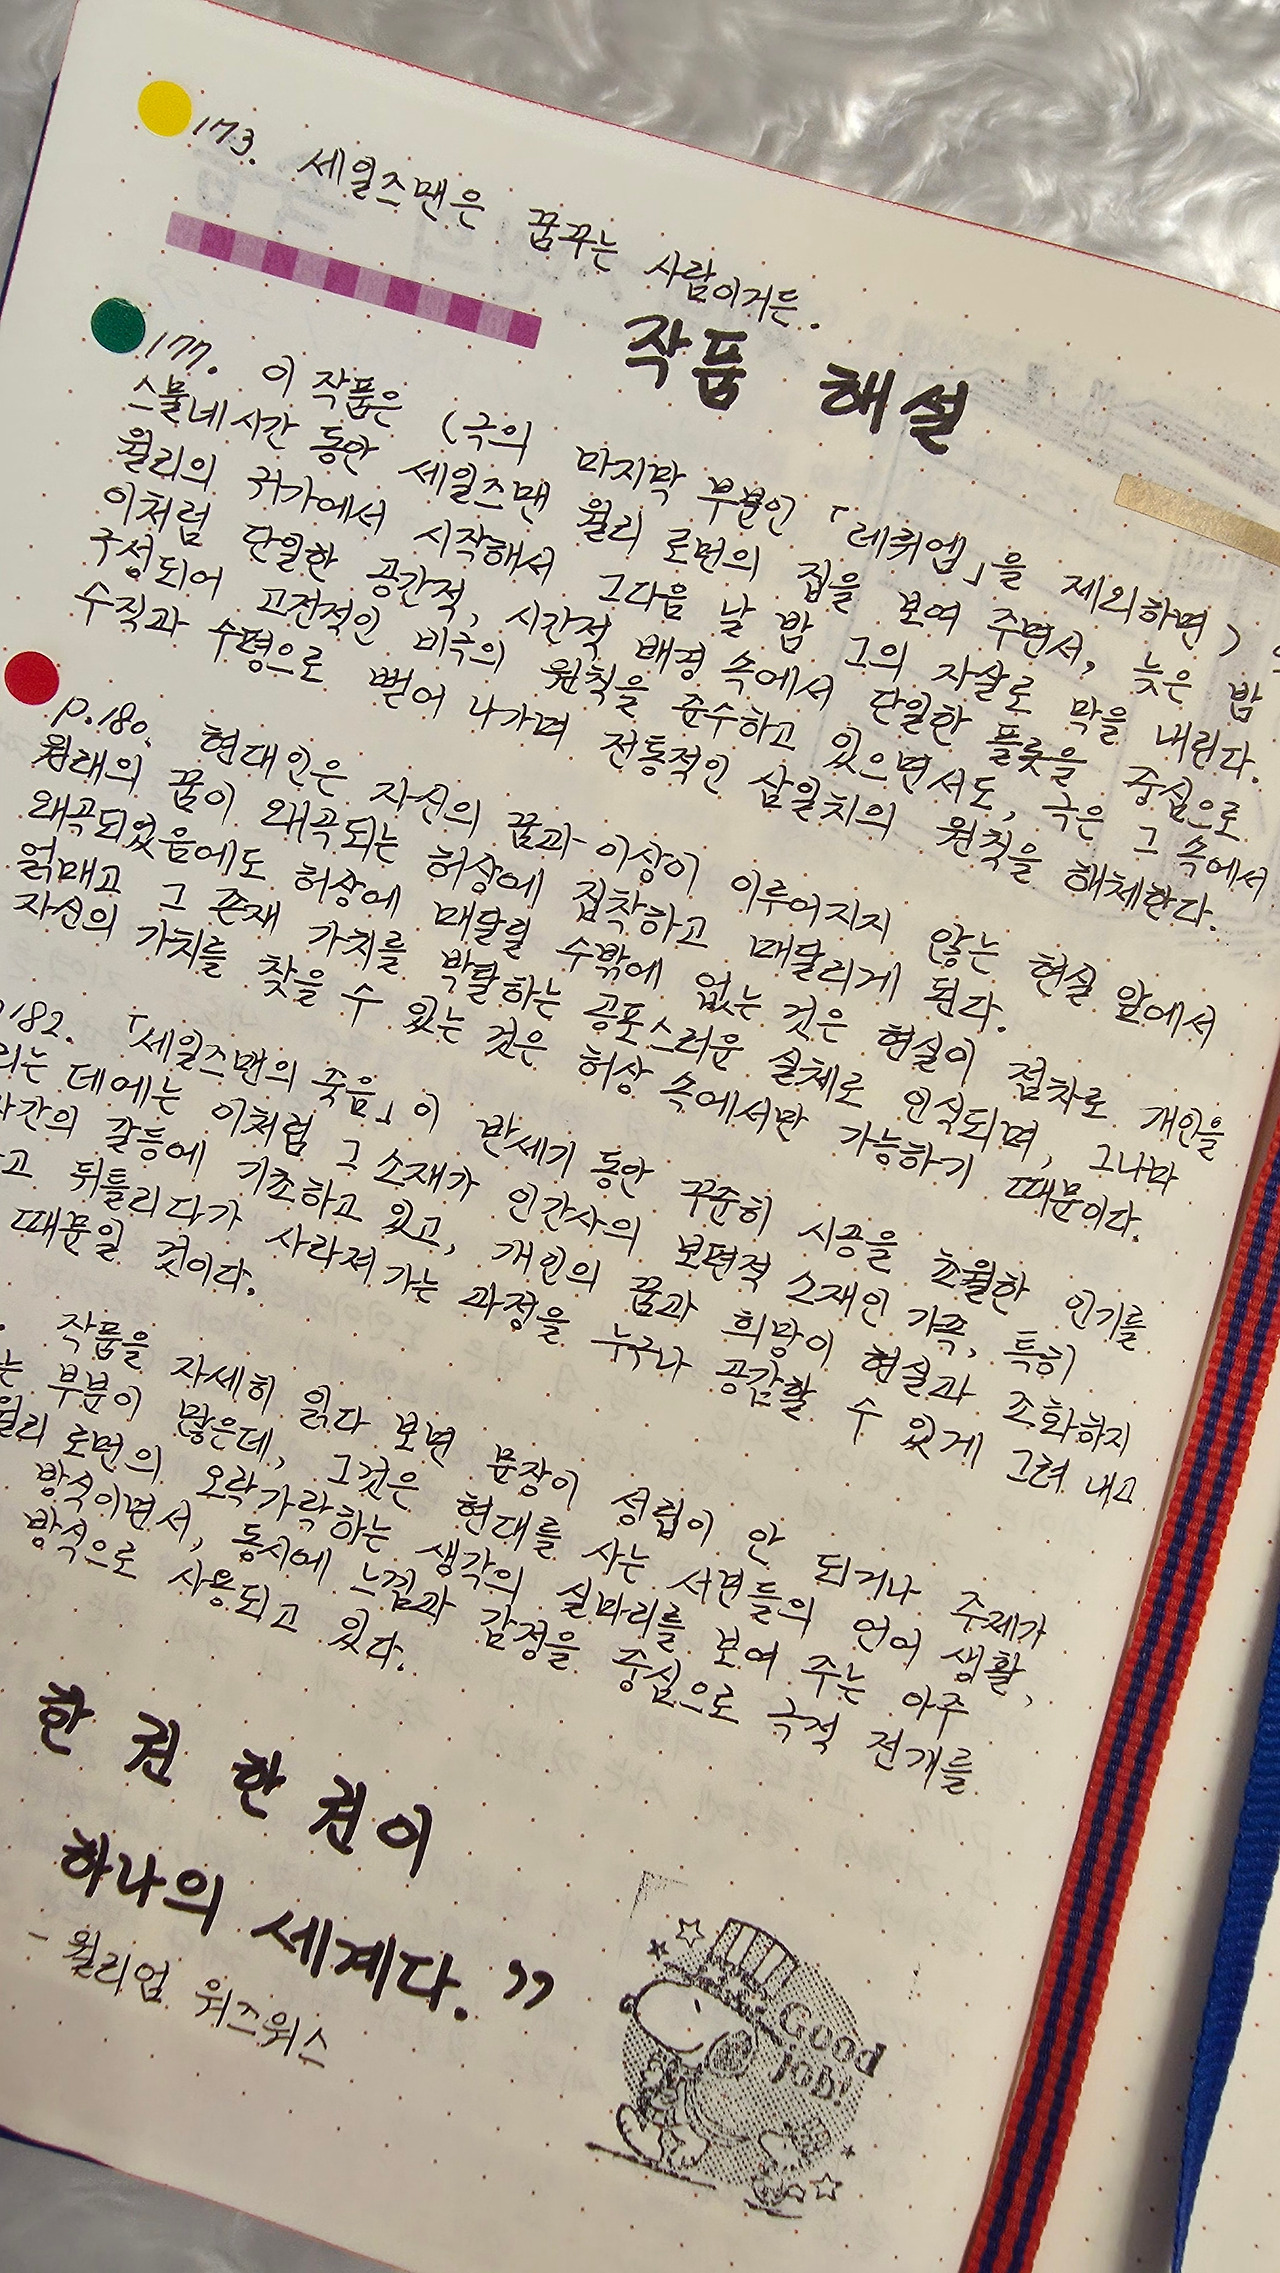 173. 세일즈맨은 꿈꾸는 사람이거든.
작품 해설
177. 이 작품은 (극의 마지막 부분인 「레퀴엠」을 제외하면)
스물네 시간 동안 세일즈맨 윌리 로먼의 집을 보여 주면서, 늦은 밤
윌리의 귀가에서 시작해서 그다음 날 밤 그의 자살로 막을 내린다.
이처럼 단일한 공간적, 시간적 배경 속에서 단일한 플롯을 중심으로
구성되어 고전적인 비극의 원칙을 준수하고 있으면서도, 극은 그 속에서
수직과 수평으로 뻗어 나가며 전통적인 삼일치의 원칙을 해체한다.
p.180. 현대인은 자신의 꿈과 이상이 이루어지지 않는 현실 앞에서
원래의 꿈이 왜곡되는 허상에 집착하고 매달리게 된다.
왜곡되었음에도 허상에 매달릴 수밖에 없는 것은 현실이 점차로 개인을
얽매고 그 존재 가치를 박탈하는 공포스러운 실체로 인식되며, 그나마
자신의 가치를 찾을 수 있는 것은 허상 속에서만 가능하기 때문이다.
182. 「세일즈맨의 죽음」이 반세기 동안 꾸준히 시공을 초월한 인기를
리는 데에는 이처럼 그 소재가 인간사의 보편적 소재인 가족, 특히
간의 갈등에 기초하고 있고, 개인의 꿈과 희망이 현실과 조화하지
고 뒤틀리다가 사라져 가는 과정을 누구나 공감할 수 있게 그려 내고
때문일 것이다.
작품을 자세히 읽다 보면 문장이 성립이 안 되거나 주제가
는 부분이 많은데, 그것은 현대를 사는 서민들의 언어 생활,
윌리 로먼의 오락가락하는 생각의 실마리를 보여 주는 아주
방식이면서, 동시에 느낌과 감정을 중심으로 극적 전개를
방식으로 사용되고 있다.
한 권 한 권이
하나의 세계다.”
- 윌리엄 워즈워스
Good
job!